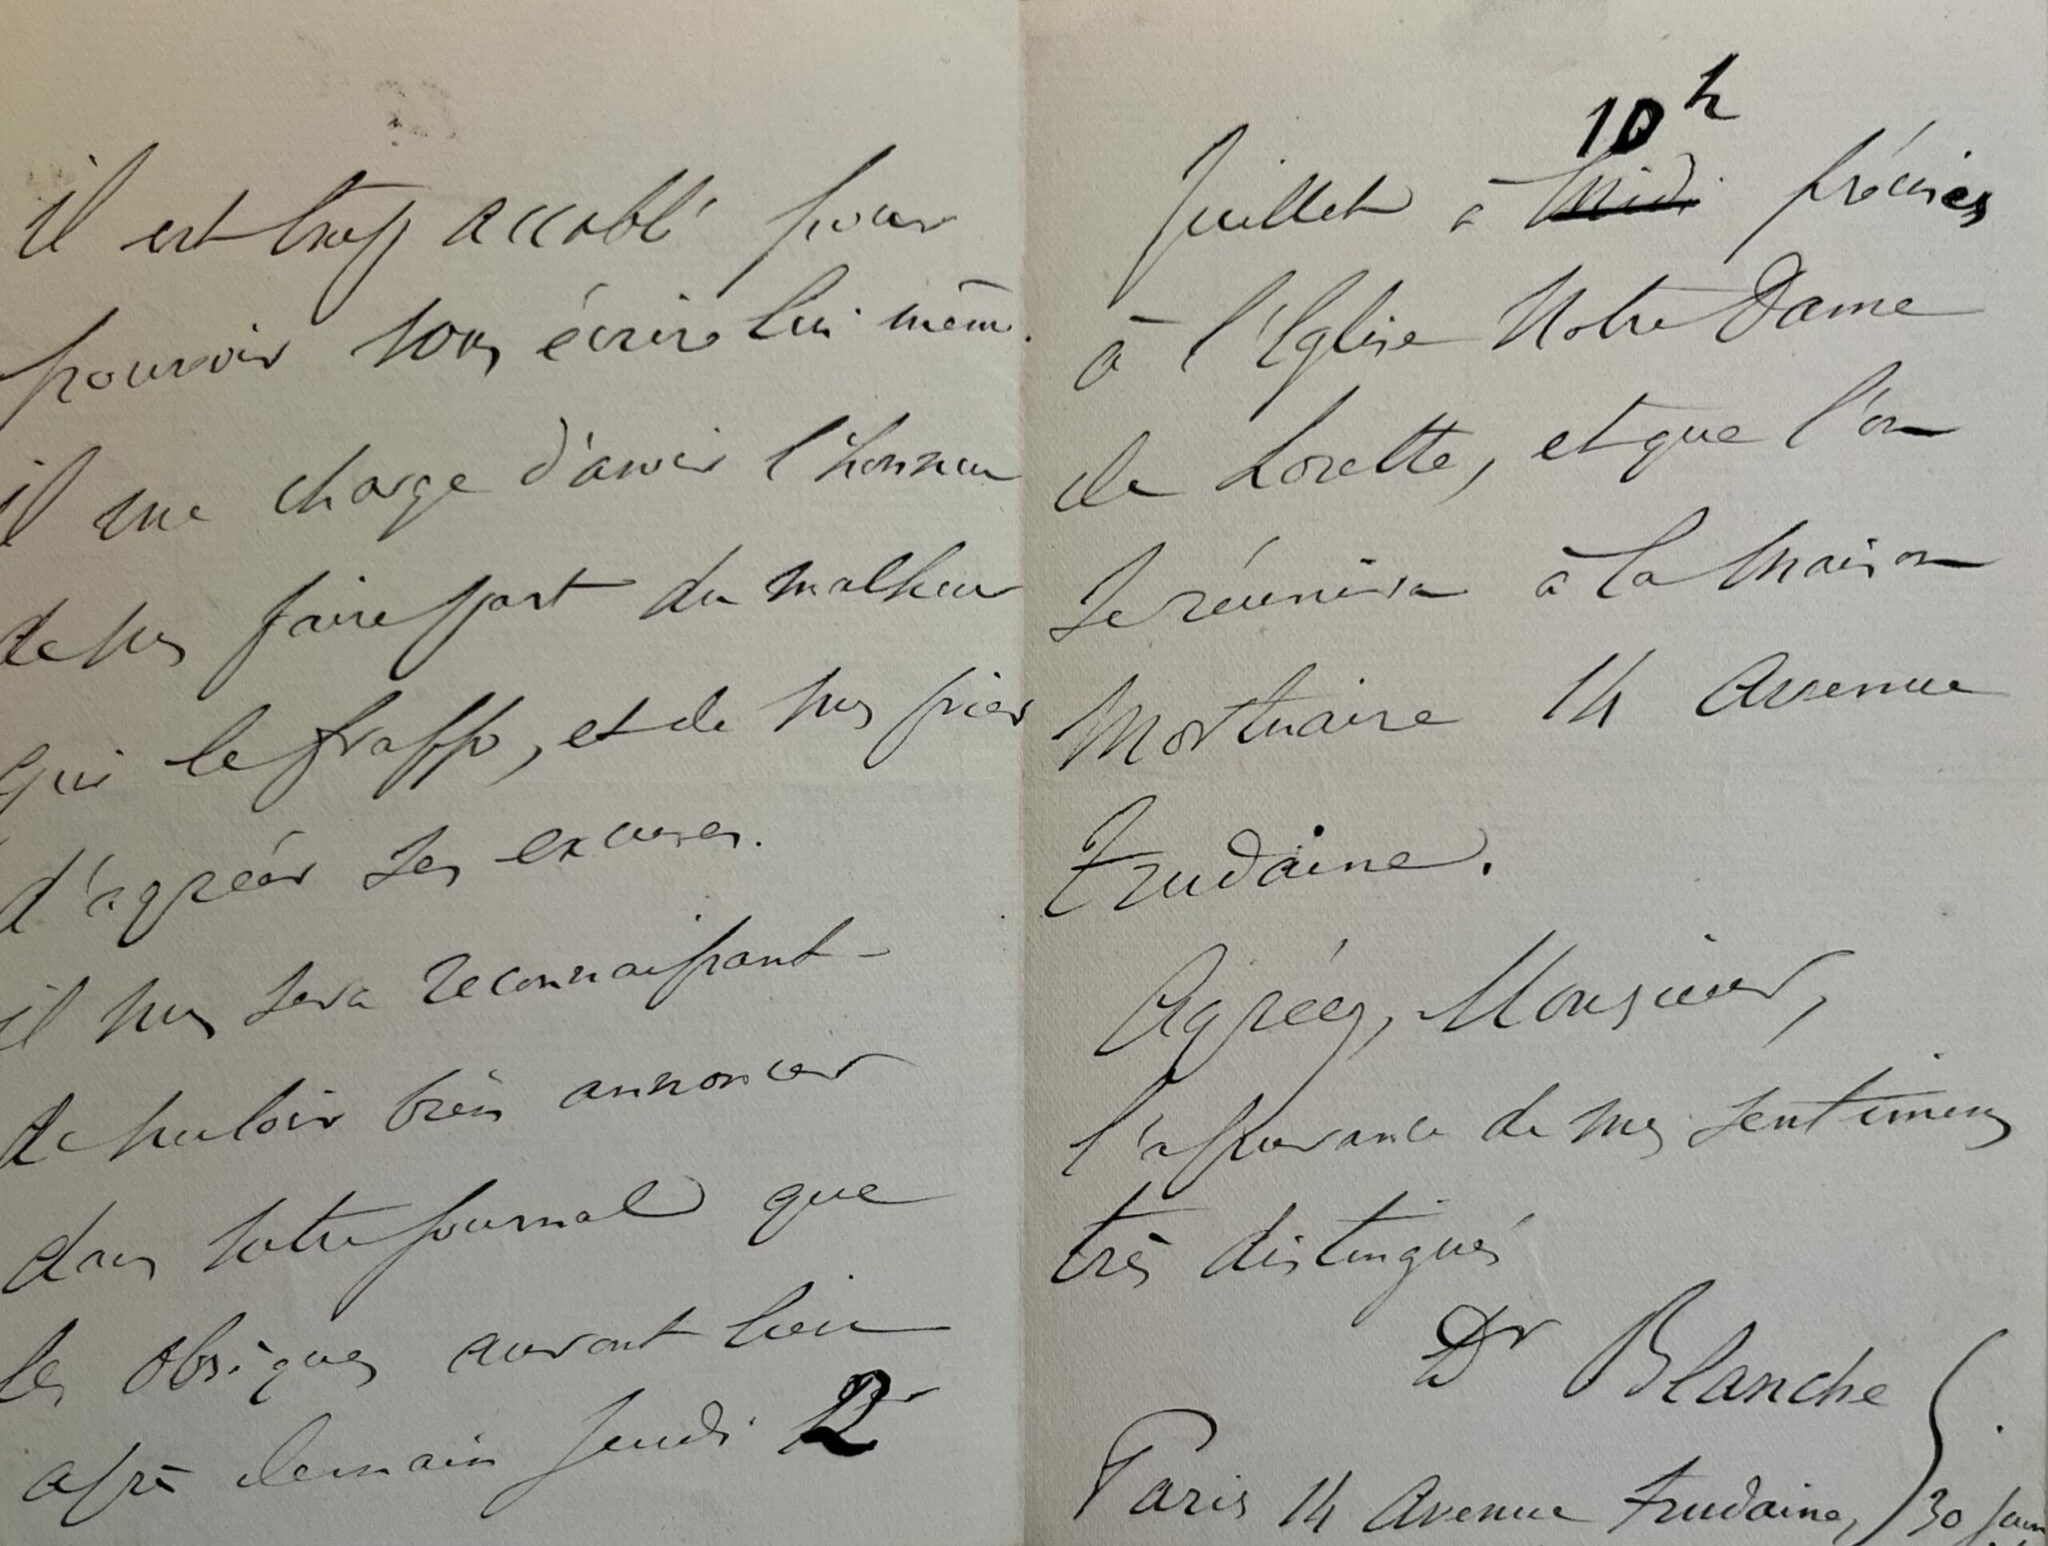 il est trop accablé pour
pouvoir vous écrire lui même.
il me charge d'avoir l'honneur
de vous faire part du malheur
qui le frappe, et de vous prier
d'agréer ses excuses.
il vous sera reconnaissant
de vouloir bien annoncer
dans votre journal que
les obsèques auront lieu
après demain Jeudi 2
10h
Juillet à midi précises
à l'Eglise Notre Dame
de Lorette, et que l'on
se réunira à la maison
Mortuaire 14 Avenue
Trudaine.
Agréez, Monsieur,
l'assurance de mes sentimens
très distingués
Dr Blanche
Paris 14 Avenue Trudaine, 30 Juin